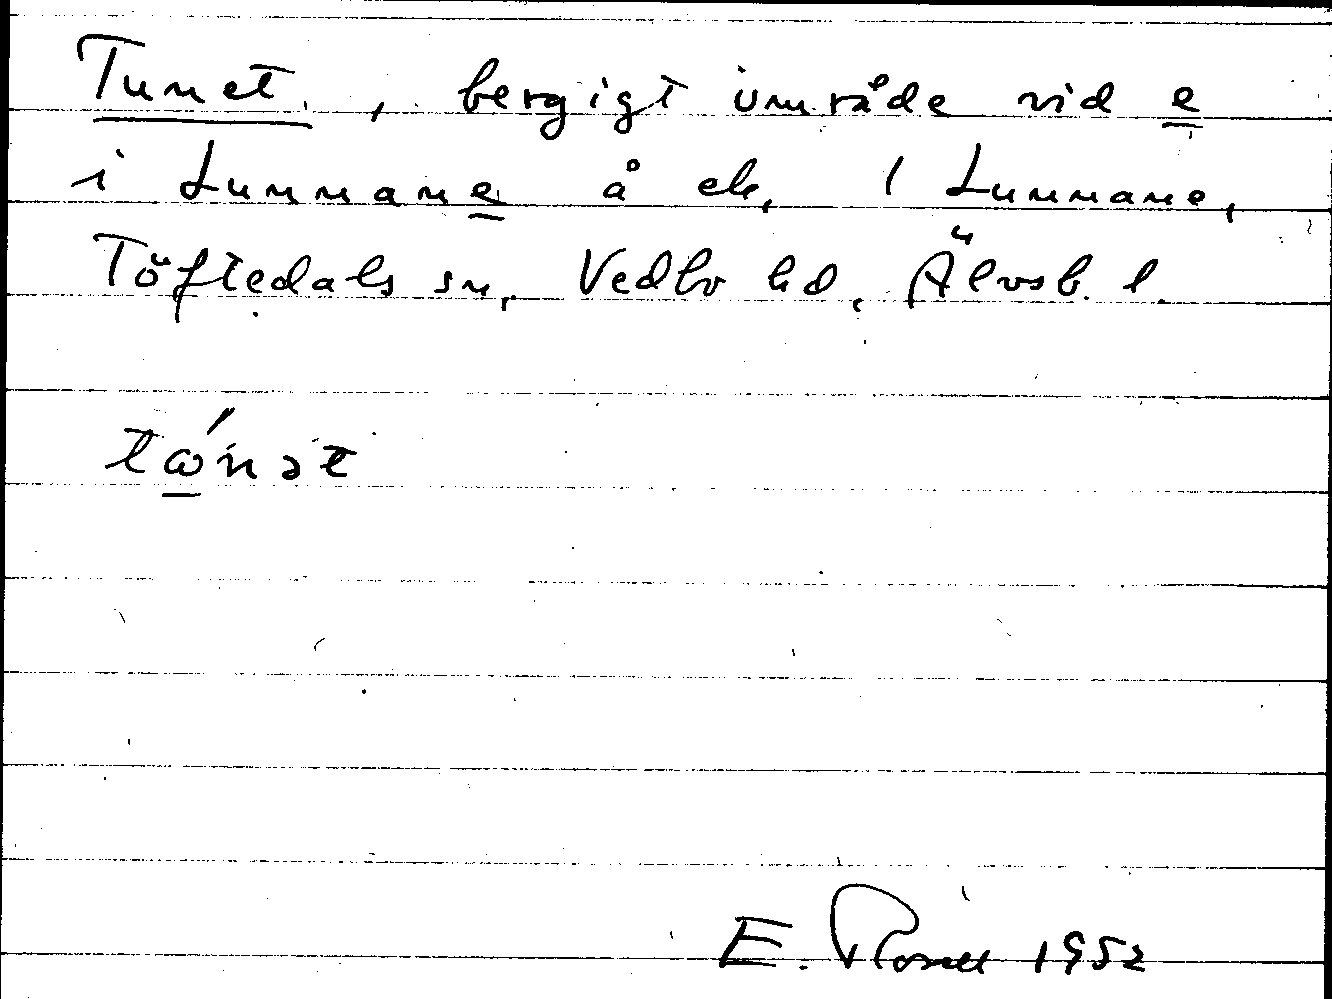 Tunet, bergigt område vid e
i Lunnane å ek, 1 Lunnane,
Töftedals sn, Vedbo hd, Älvsb. l.
tώnət
E. Rosell 1952